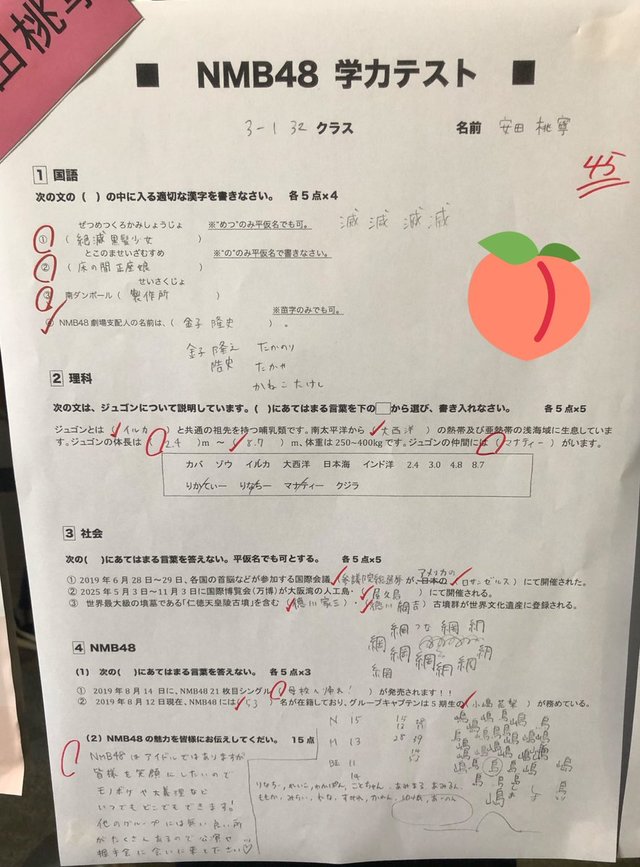 田桃寧
■ NMB48 学力テスト ■
3-1 32 クラス 名前 安田 桃寧
45
1 国語
次の文の（ ）の中に入る適切な漢字を書きなさい。 各5点×4
滅 滅 滅 滅
ぜつめつくろかみしょうじょ ※"めつ"のみ平仮名でも可。
①（ 絶滅黒髪少女 ）
とこのませいざむすめ ※"の"のみ平仮名で書きなさい。
②（ 床の間正座娘 ）
せいさくじょ
③ 南ダンボール（ 製作所 ）
※苗字のみでも可。
④ NMB48 劇場支配人の名前は、（ 金子 隆史 ）。
金子 隆え たかのり
皓史 たかや
かねこ たけし
2 理科
次の文は、ジュゴンについて説明しています。（ ）にあてはまる言葉を下の□から選び、書き入れなさい。 各5点×5
ジュゴンとは（ イルカ ）と共通の祖先を持つ哺乳類です。南太平洋から（ 大西洋 ）の熱帯及び亜熱帯の浅海域に生息していま
す。ジュゴンの体長は（ 2.4 ）m ～（ 8.7 ）m、体重は 250~400kg です。ジュゴンの仲間には（ マナティー ）がいます。
カバ ゾウ イルカ 大西洋 日本海 インド洋 2.4 3.0 4.8 8.7
りかてぃー りなちー マナティー クジラ
3 社会
次の（ ）にあてはまる言葉を答えない。平仮名でも可とする。 各5点×5
アメリカの
① 2019 年 6 月 28 日～29 日、各国の首脳などが参加する国際会議（参議院総選挙）が、日本の（ ロサンゼルス ）にて開催された。
② 2025 年 5 月 3 日～11 月 3 日に国際博覧会（万博）が大阪湾の人工島・（ 屋久島 ）にて開催される。
③ 世界最大級の墳墓である「仁徳天皇陵古墳」を含む（徳川 家三）・（徳川 綱吉）古墳群が世界文化遺産に登録される。
網 つな 綱 網
綱
4 NMB48
（1） 次の（ ）にあてはまる言葉を答えない。 各5点×3
① 2019 年 8 月 14 日に、NMB48 21 枚目シングル（ 母校へ帰れ! ）が発売されます！！
② 2019 年 8 月 12 日現在、NMB48 には（ 53 ）名が在籍しており、グループキャプテンは 5 期生の（ 小嶋 花梨 ）が務めている。
（2）NMB48 の魅力を皆様にお伝えしてくだい。 15 点
N 15
M 13
BII 11
14
NMB48はアイドルではありますが
皆様を笑顔にしたいので
モノボケや大喜利など
いつでもどこでもできます!
他のグループには無い良い所
がたくさんあるので公演や
握手会に会いに来て下さい♡